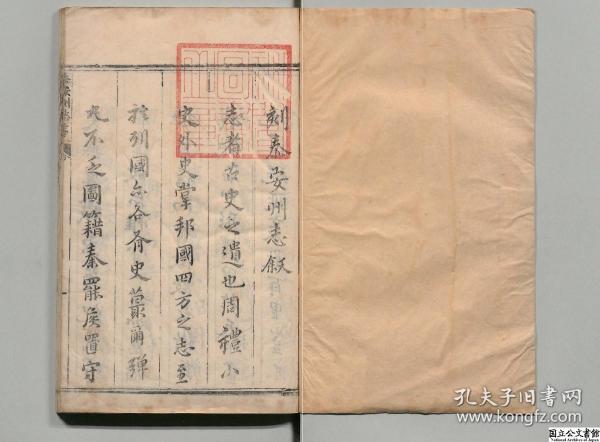 刻泰安州志叙
志者古史之遺也周禮小
史外史掌邦國四方之志至
於列國亦各有史蕞爾彈
丸不乏圖籍秦罷侯置守
泰安州志
孔夫子旧书网
www.kongfz.com
国立公文書館
National Archives of Japan